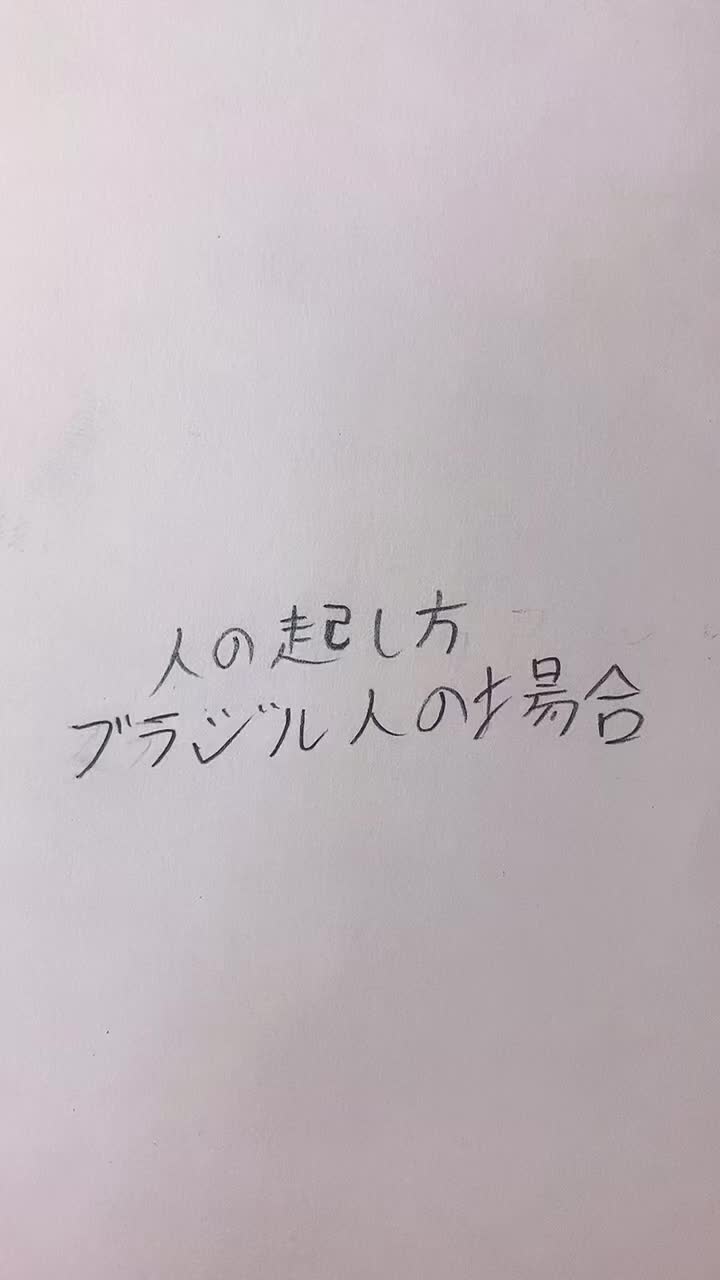 人の起し方
ブラジル人の場合